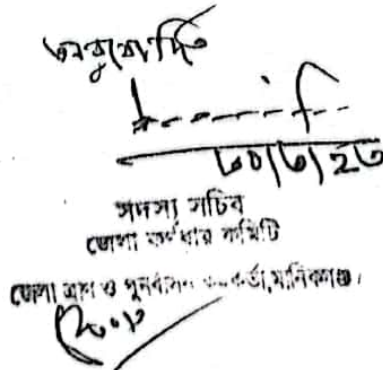 অনুমোদিত
৩০/৩/২৩
সদস্য সচিব
জেলা কর্ণধার কমিটি
জেলা ত্রাণ ও পুনর্বাসন কর্মকর্তা, মানিকগঞ্জ।